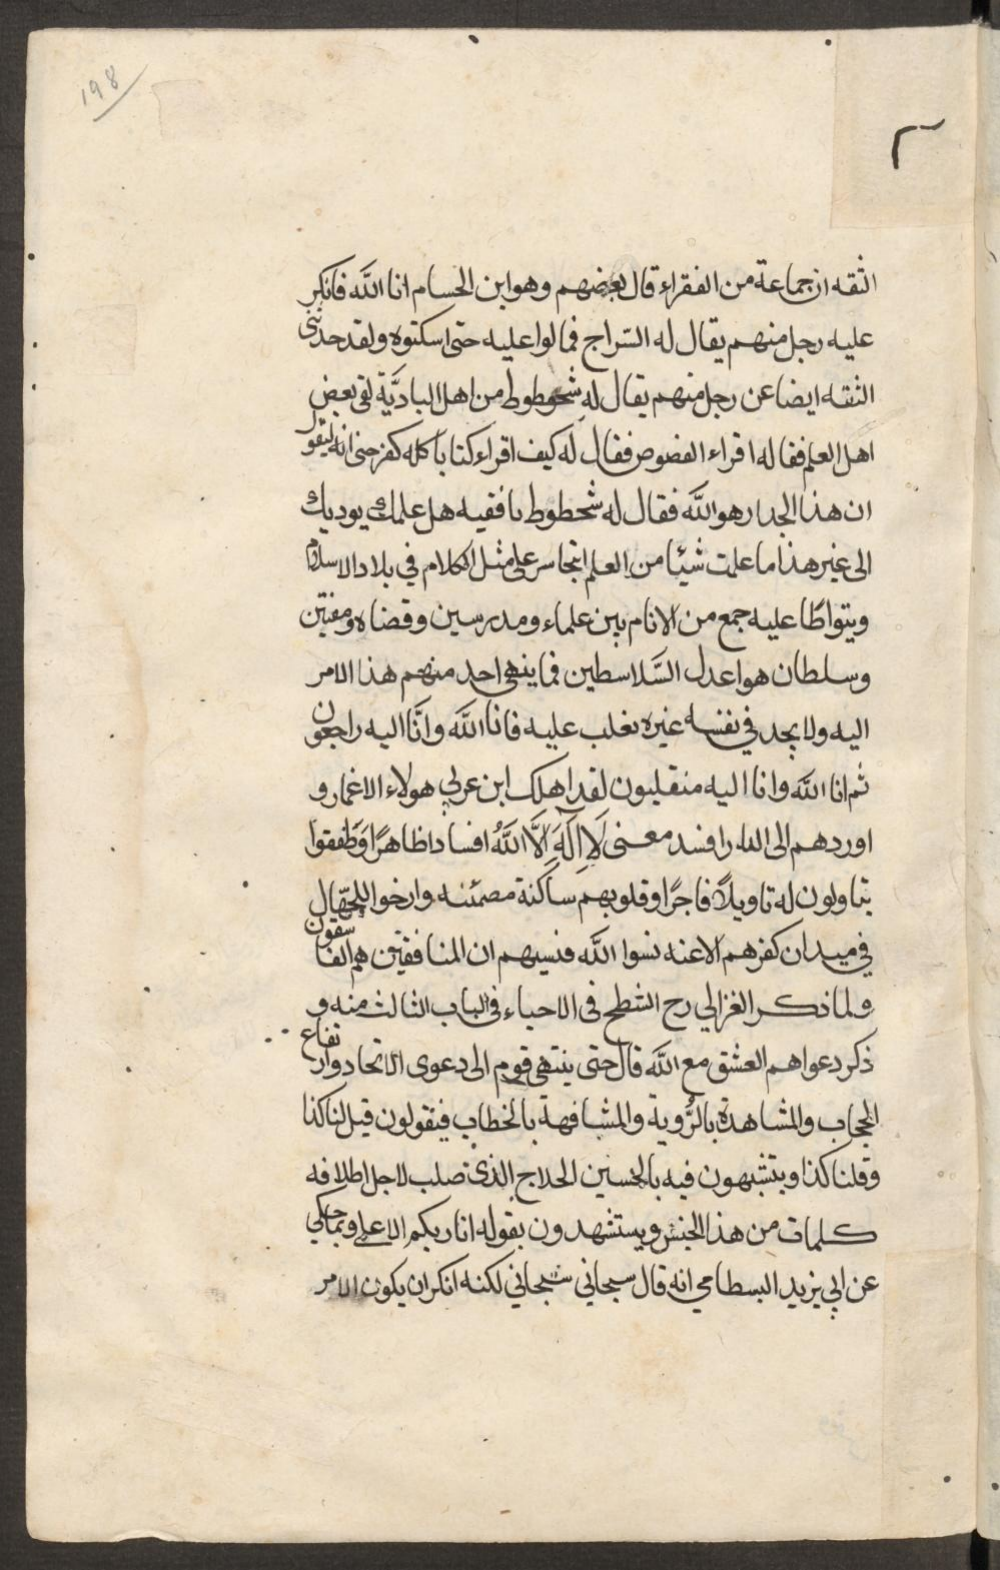 198
٢
الثقه ان جماعة من الفقراء قال بعضهم وهو ابن الحسام انا الله فانكر
عليه رجل منهم يقال له السّراج فمالوا عليه حتى اسكتوه ولقد حدثنى
الثقه ايضا عن رجل منهم يقال له شحطوط من اهل الباديَّة لقى بعض
اهل العلم فقال له اقراء الفصوص فقال له كيف اقراء كتابا كله كفر حتى انه ليقول
ان هذا الجدار هو الله فقال له شحطوط يا فقيه هل علمك يوديك
الى غير هذا ما علمت شيئا من العلم اتجاسر على مثل الكلام في بلاد الاسلام
ويتواطا عليه جمع من الانام بين علماء ومدرسين وقضاه ومفتين
وسلطان هو اعدل السَّلاسطين فما ينهى احد منهم هذا الامر
اليه ولا يجد في نفسه غيره تغلب عليه فانا الله وانَّا اليه راجعون
ثم انا الله وانا اليه منقلبون لقد اهلك ابن عربي هولاء الاغمار و
اوردهم الى النار افسد معنى لَا اِلَهَ اِلَّا اللَّهُ افسادا ظاهرًا وَطَفقوا
يتاولون له تاويلًا فاجرًا وقلوبهم ساكنة مصمئنه وارخوا للجهّال
في ميدان كفرهم الاعنه نسوا الله فنسيهم ان المنافقين هم الفاسقون
ولما ذكر الغزالي رح الشطح فى الاحياء فى الباب الثالث منه و
ذكر دعواهم العشق مع الله قال حتى ينتهى قوم الى دعوى الاتحاد وارتفاع
الحجاب والمشاهدة بالرُّوية والمشافهة بالخطاب فيقولون قيل لنا كذا
وقلنا كذا ويتشبهون فيه بالحسين الحلاج الذى صلب لاجل اطلاقه
كلمات من هذا الجنس ويستشهدون بقوله انا ربكم الاعلى وبما حكي
عن ابي يزيد البسطامي انه قال سبحاني سبحاني لكنه انكر ان يكون الامر